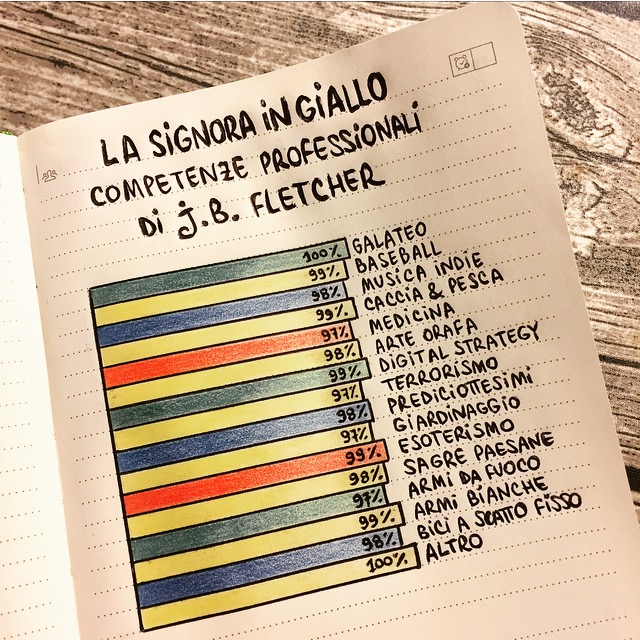 LA SiGNORA iN GiALLO
COMPETENZE PROFESSIONALI
Di J.B. FLETCHER
100% GALATEO
99% BASEBALL
98% MUSICA INDIE
99% CACCIA & PESCA
97% MEDICINA
98% ARTE ORAFA
99% DIGITAL STRATEGY
97% TERRORISMO
98% PREDICIOTTESIMI
97% GIARDINAGGIO
99% ESOTERISMO
98% SAGRE PAESANE
97% ARMI DA FUOCO
99% ARMI BIANCHE
98% BICI A SCATTO FISSO
100% ALTRO